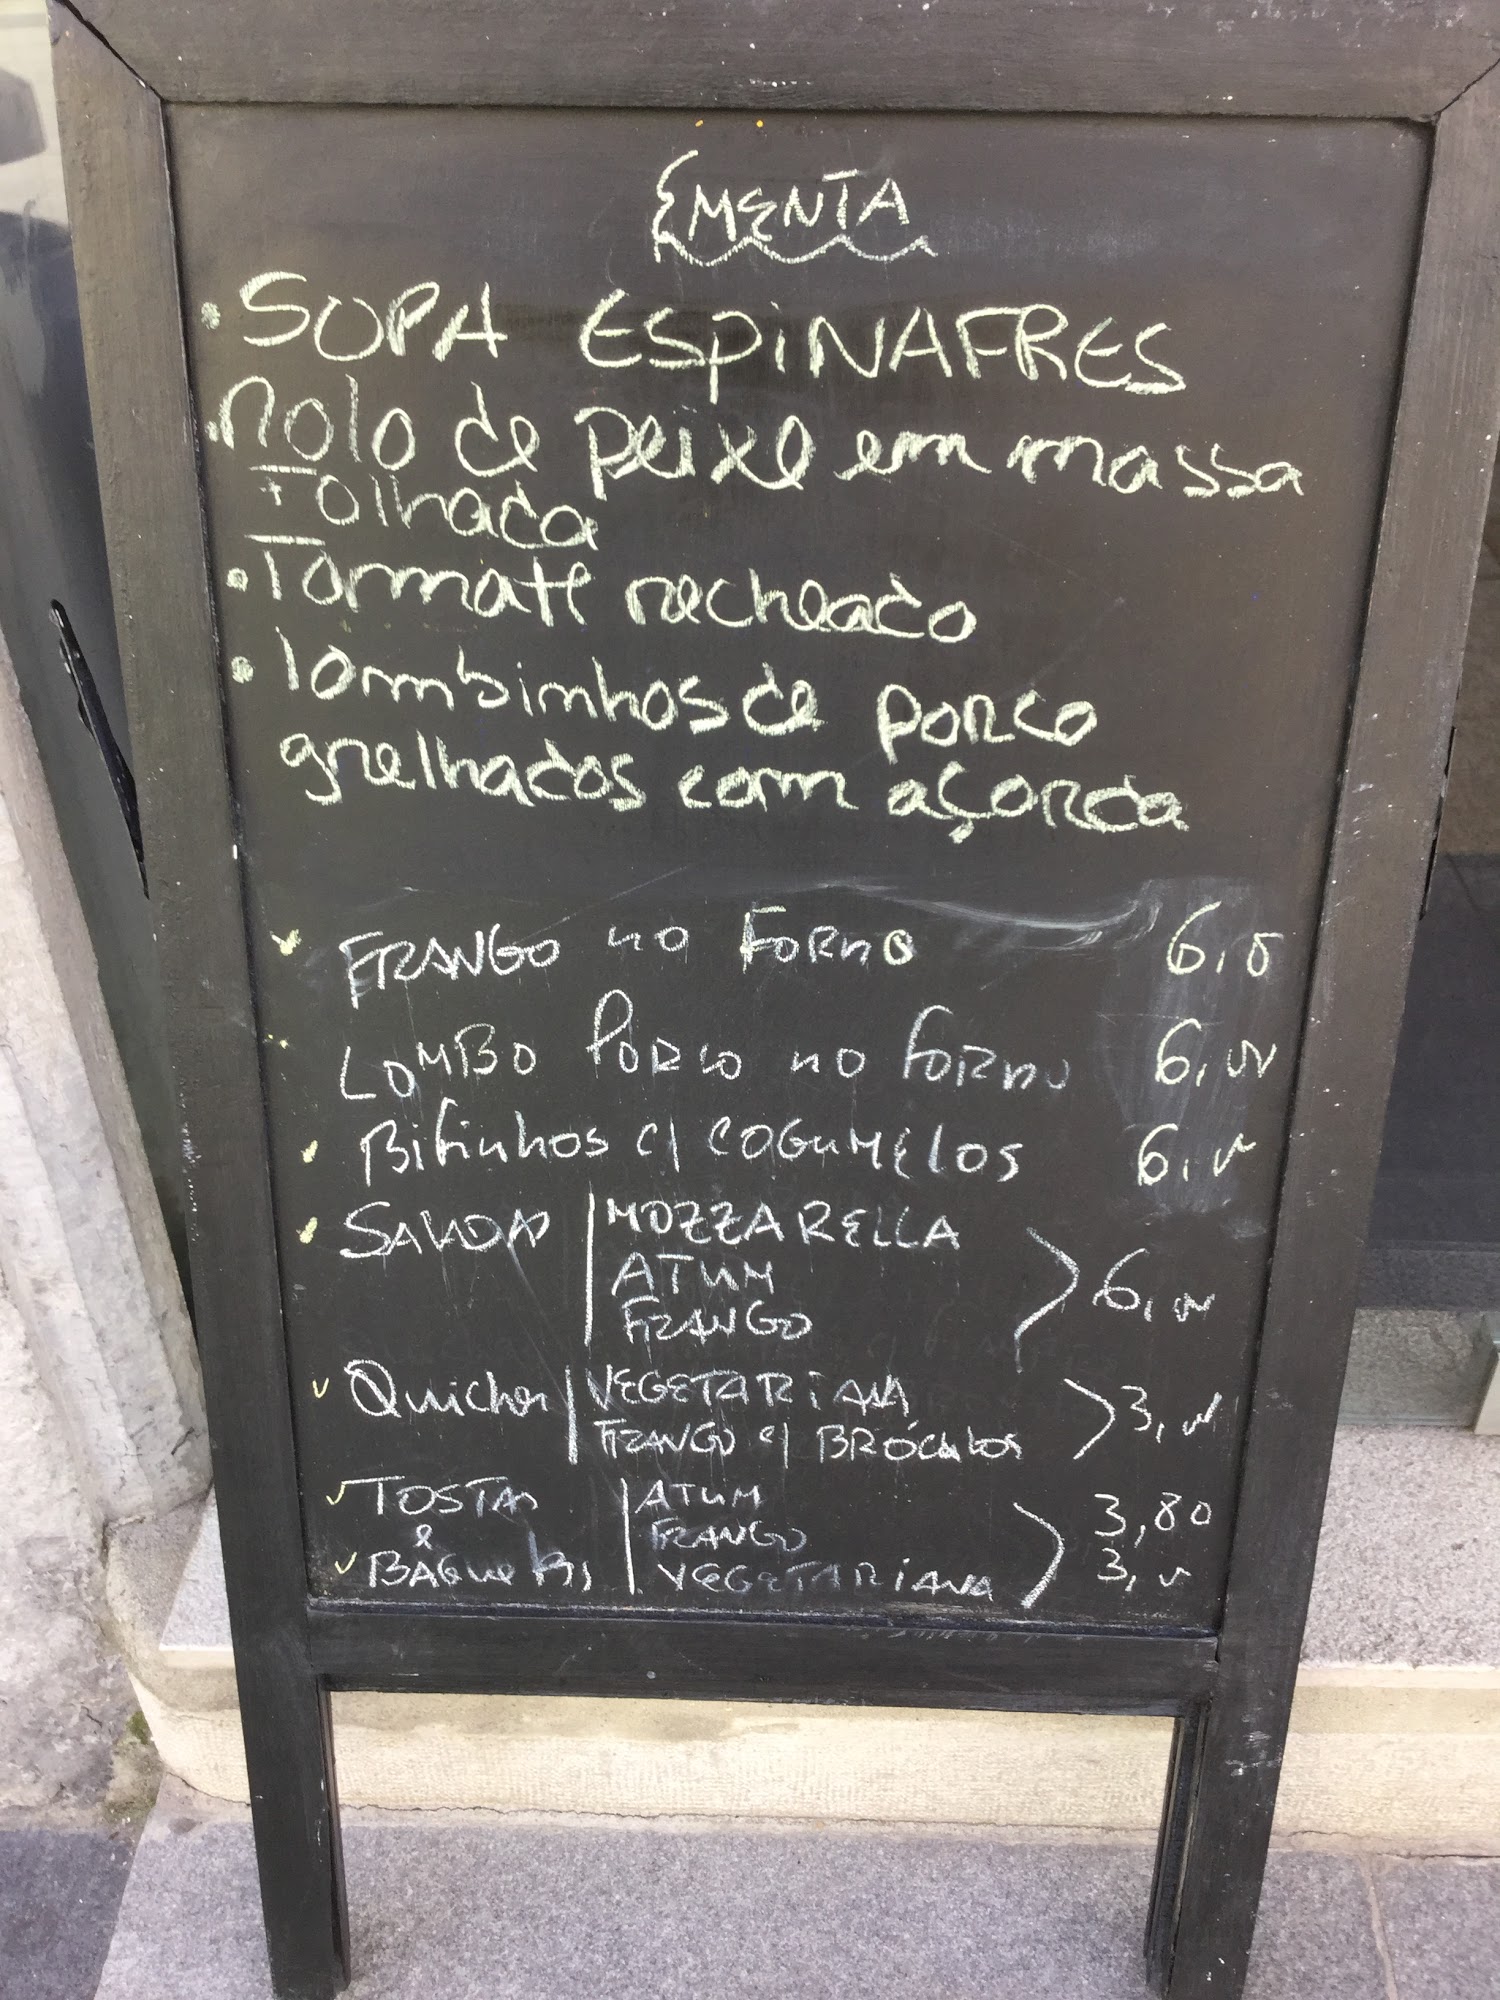 EMENTA
• SOPA ESPINAFRES
• rolo de peixe em massa
Folhada
• Tomate recheado
• lombinhos de porco
grelhados com açorda
FRANGO no FORNO 6,00
LOMBO PORCO no FORNO 6,00
Bifinhos c/ COGUMELOS 6,00
SALADAS | MOZZARELLA
ATUM 6,00
FRANGO
Quiches | VEGETARIANA 3,00
FRANGO c/ BRÓCULOS
TOSTAS | ATUM 3,80
& FRANGO
BAGUETES | VEGETARIANA 3,